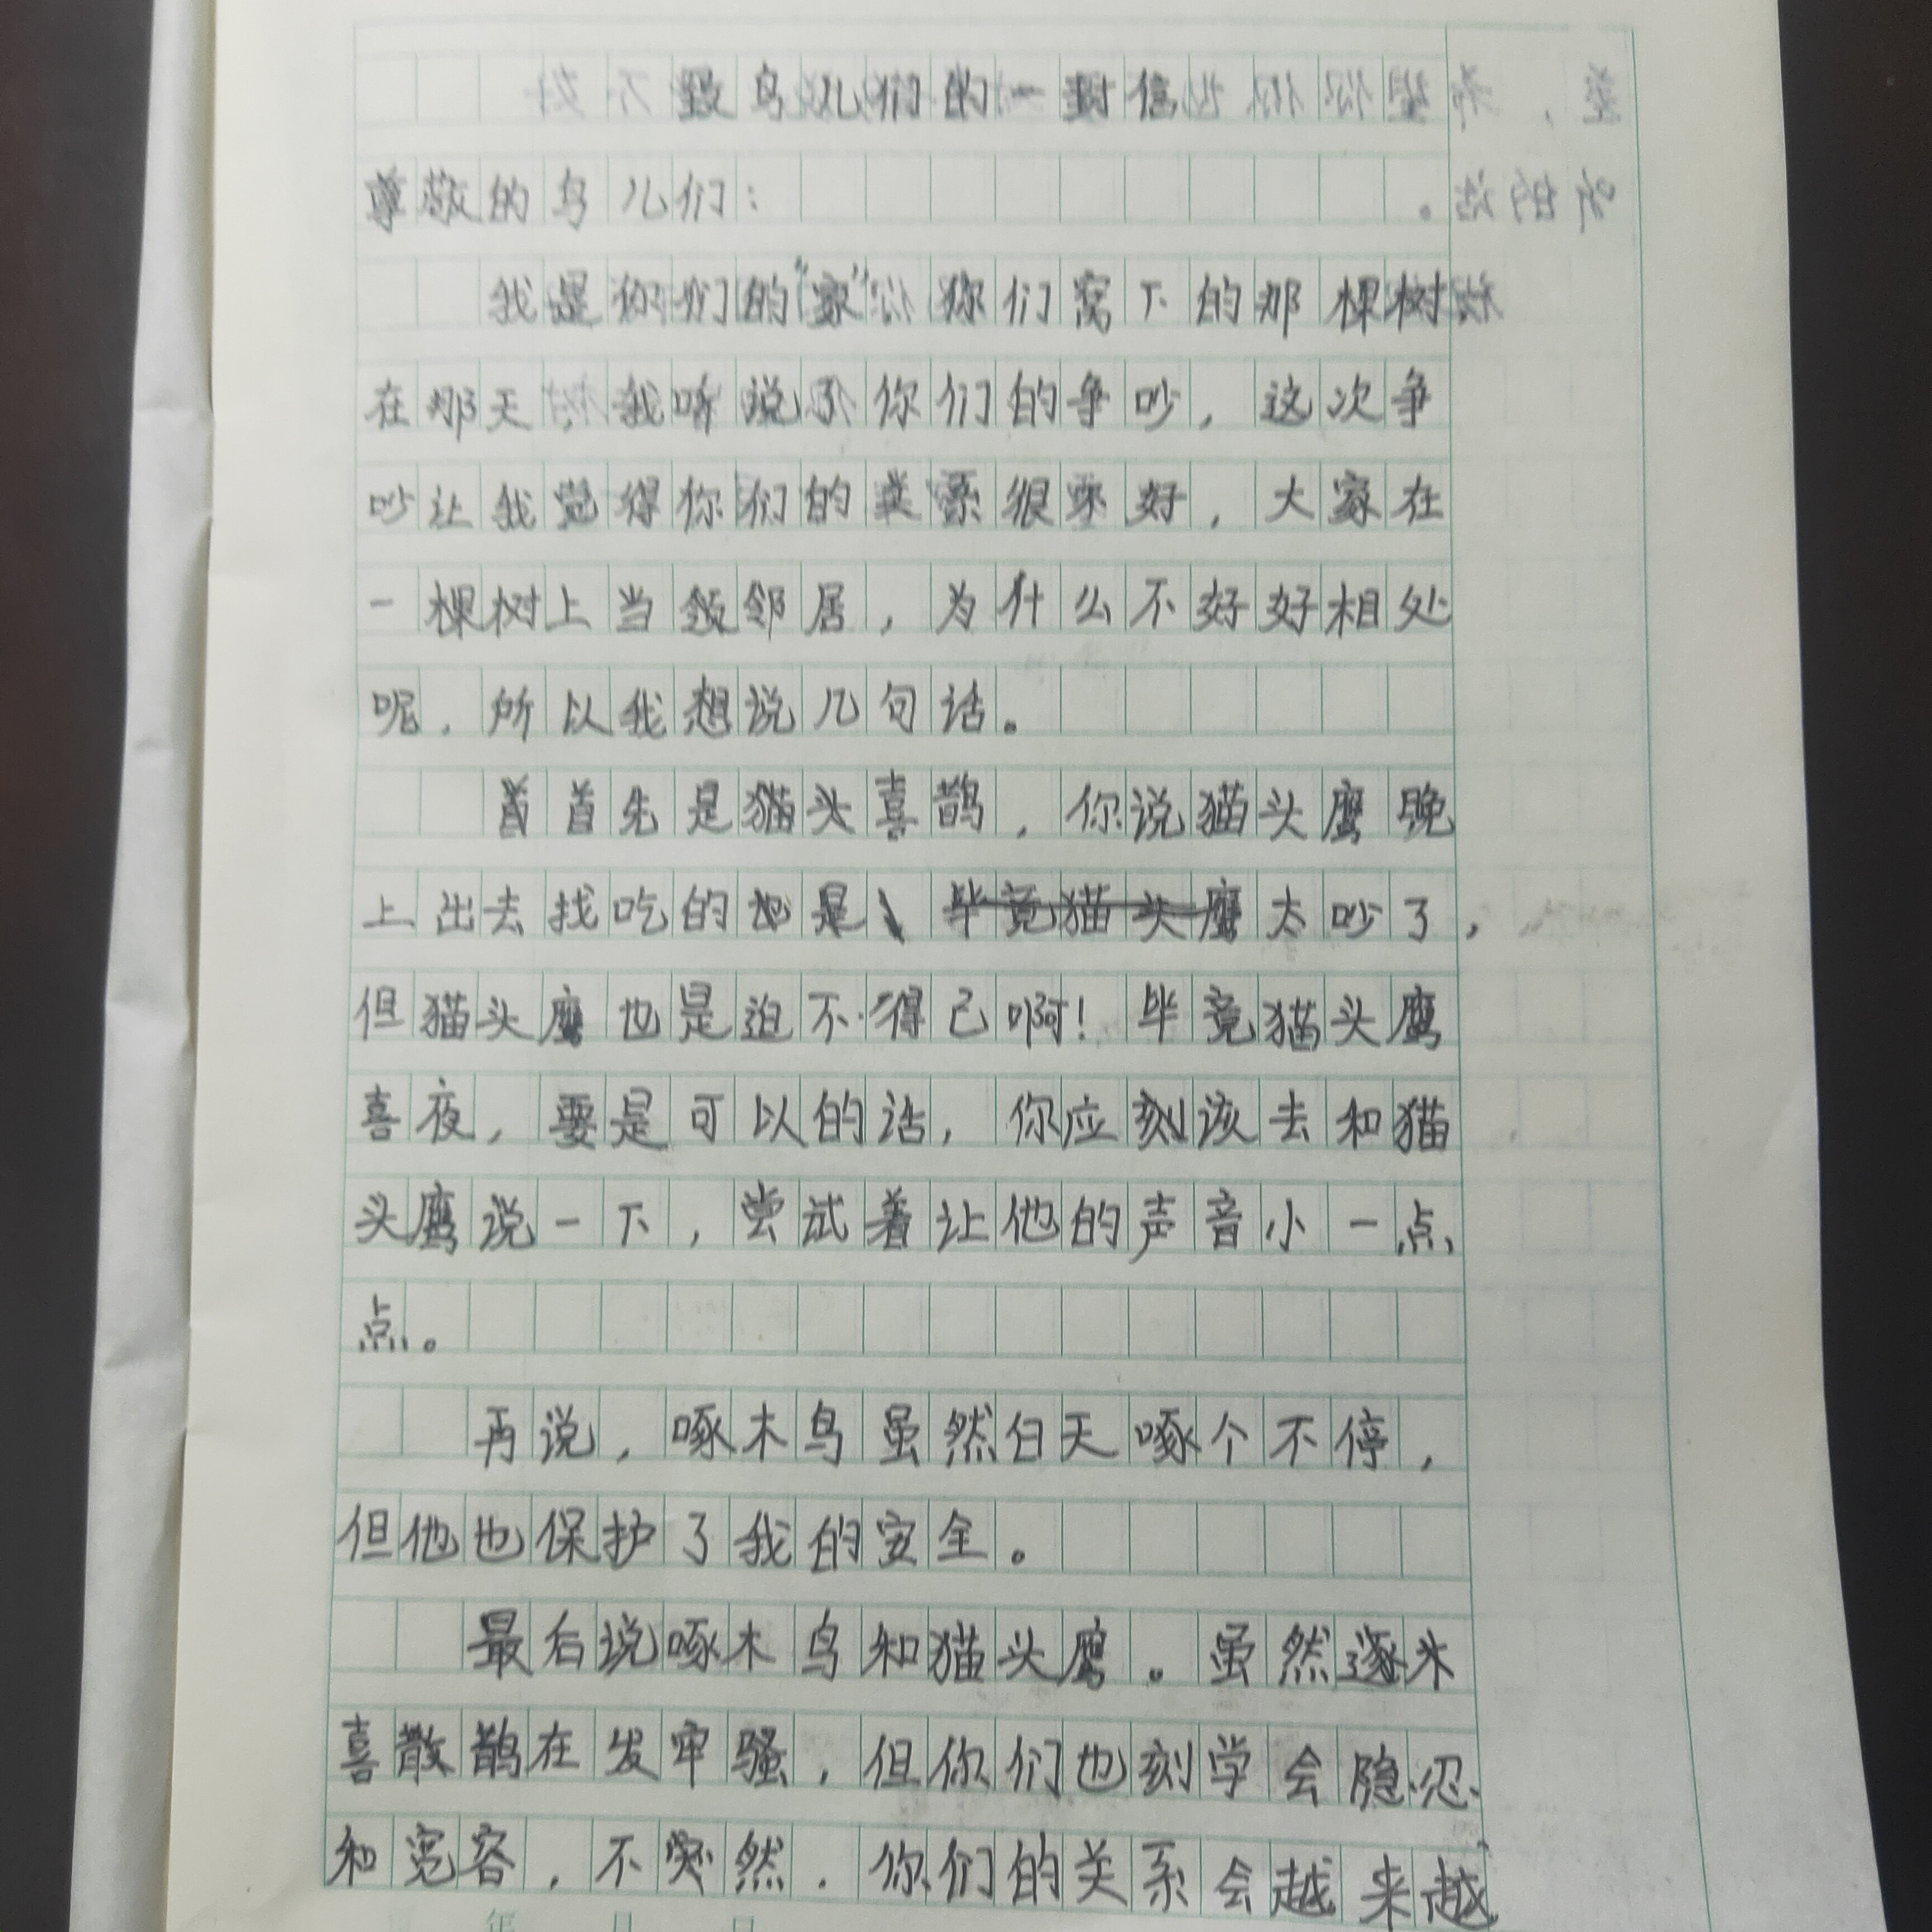 致鸟儿们的一封信
尊敬的鸟儿们：
我是你们的"家"你们窝下的那棵树
在那天，我听说了你们的争吵，这次争
吵让我觉得你们的关系很不好，大家在
一棵树上当领邻居，为什么不好好相处
呢，所以我想说几句话。
首首先是猫头喜鹊，你说猫头鹰晚
上出去找吃的也是、毕竟猫头鹰太吵了，
但猫头鹰也是迫不得已啊！毕竟猫头鹰
喜夜，要是可以的话，你应刻该去和猫
头鹰说一下，尝试着让他的声音小一点
点。
再说，啄木鸟虽然白天啄个不停，
但他也保护了我的安全。
最后说啄木鸟和猫头鹰。虽然逐木
喜散鹊在发牢骚，但你们也刻学会隐忍
和宽容，不突然．你们的关系会越来越
年 月 日